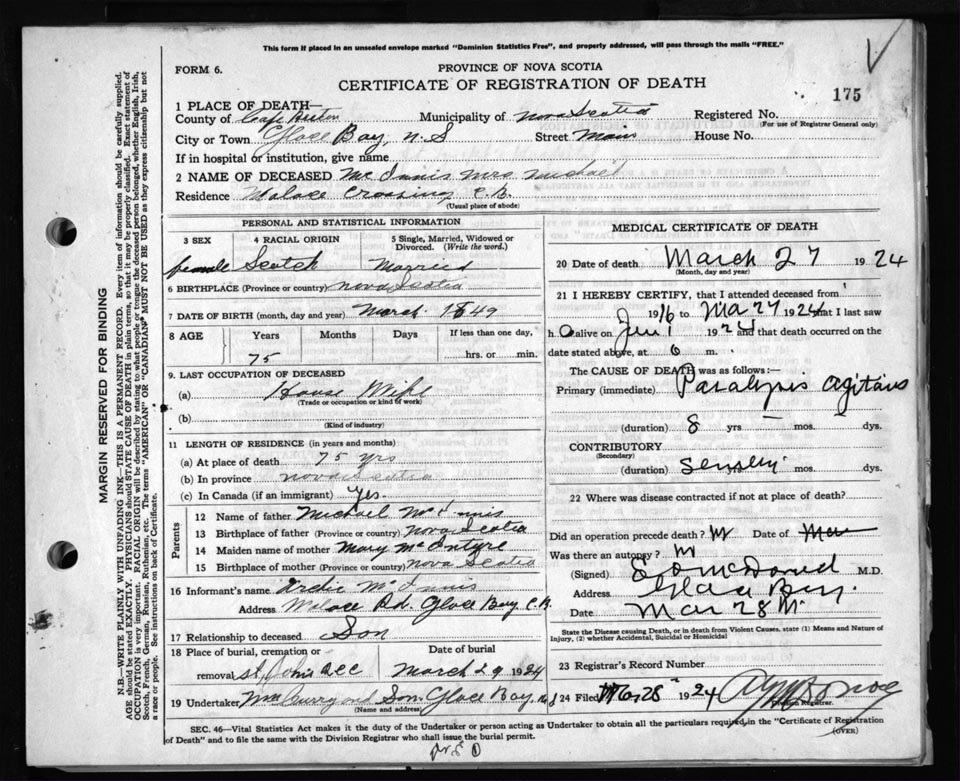 This form if placed in an unsealed envelope marked "Dominion Statistics Free", and properly addressed, will pass through the mails "FREE."
FORM 6.
PROVINCE OF NOVA SCOTIA
CERTIFICATE OF REGISTRATION OF DEATH
175
1 PLACE OF DEATH—
County of Cape Breton Municipality of Nova Scotia Registered No.
(For use of Registrar General only)
City or Town Glace Bay, N.S Street Main House No.
If in hospital or institution, give name
2 NAME OF DECEASED Mc Innis Mrs Michael
Residence Crossing C.B.
(Usual place of abode)
PERSONAL AND STATISTICAL INFORMATION
3 SEX 4 RACIAL ORIGIN 5 Single, Married, Widowed or Divorced. (Write the word.)
female Scotch Married
6 BIRTHPLACE (Province or country) Nova Scotia
7 DATE OF BIRTH (month, day and year) March 1849
8 AGE Years Months Days If less than one day,
75 hrs. or min.
9. LAST OCCUPATION OF DECEASED
(a) House Wife
(Trade or occupation or kind of work)
(b)
(Kind of industry)
11 LENGTH OF RESIDENCE (in years and months)
(a) At place of death 75 yrs
(b) In province Nova Scotia
(c) In Canada (if an immigrant) Yes.
Parents
12 Name of father Michael McInnis
13 Birthplace of father (Province or country) Nova Scotia
14 Maiden name of mother Mary McIntyre
15 Birthplace of mother (Province or country) Nova Scotia
16 Informant's name McInnis
Address Rd. Glace Bay C.B.
17 Relationship to deceased Son
18 Place of burial, cremation or removal Date of burial
St. John March 29 1924
19 Undertaker Wm Curry and Son Glace Bay
(Name and address)
MEDICAL CERTIFICATE OF DEATH
20 Date of death March 27 1924
(Month, day and year)
21 I HEREBY CERTIFY, that I attended deceased from
1916 to Mar 27 1924 that I last saw
h alive on Jun 1 1924 and that death occurred on
date stated above, at 6 m.
The CAUSE OF DEATH was as follows:—
Primary (immediate) Paralysis Agitans
(duration) 8 yrs. mos. dys.
CONTRIBUTORY
(Secondary)
(duration) yrs. mos. dys.
22 Where was disease contracted if not at place of death?
Did an operation precede death? Date of
Was there an autopsy?
(Signed) M.D.
Address Glace Bay.
Date Mar 28
State the Disease causing Death, or in death from Violent Causes, state (1) Means and Nature of Injury, (2) whether Accidental, Suicidal or Homicidal
23 Registrar's Record Number
24 Filed Mar 28 1924
Division Registrar.
SEC. 46—Vital Statistics Act makes it the duty of the Undertaker or person acting as Undertaker to obtain all the particulars required, in the "Certificate of Registration of Death" and to file the same with the Division Registrar who shall issue the burial permit.
(OVER)
MARGIN RESERVED FOR BINDING
N.B—WRITE PLAINLY WITH UNFADING INK—THIS IS A PERMANENT RECORD. Every item of information should be carefully supplied.
AGE should be stated EXACTLY. PHYSICIANS should STATE CAUSE OF DEATH in plain terms, so that it may be properly classified. Exact statement of
OCCUPATION is very important. RACIAL ORIGIN will be described by stating to what people or tongue the deceased person belonged, whether English, Irish,
Scotch, French, German, Russian, Ruthenian, etc. The terms "AMERICAN" OR "CANADIAN" MUST NOT BE USED as they express citizenship but not
a race or people. See instructions on back of Certificate.